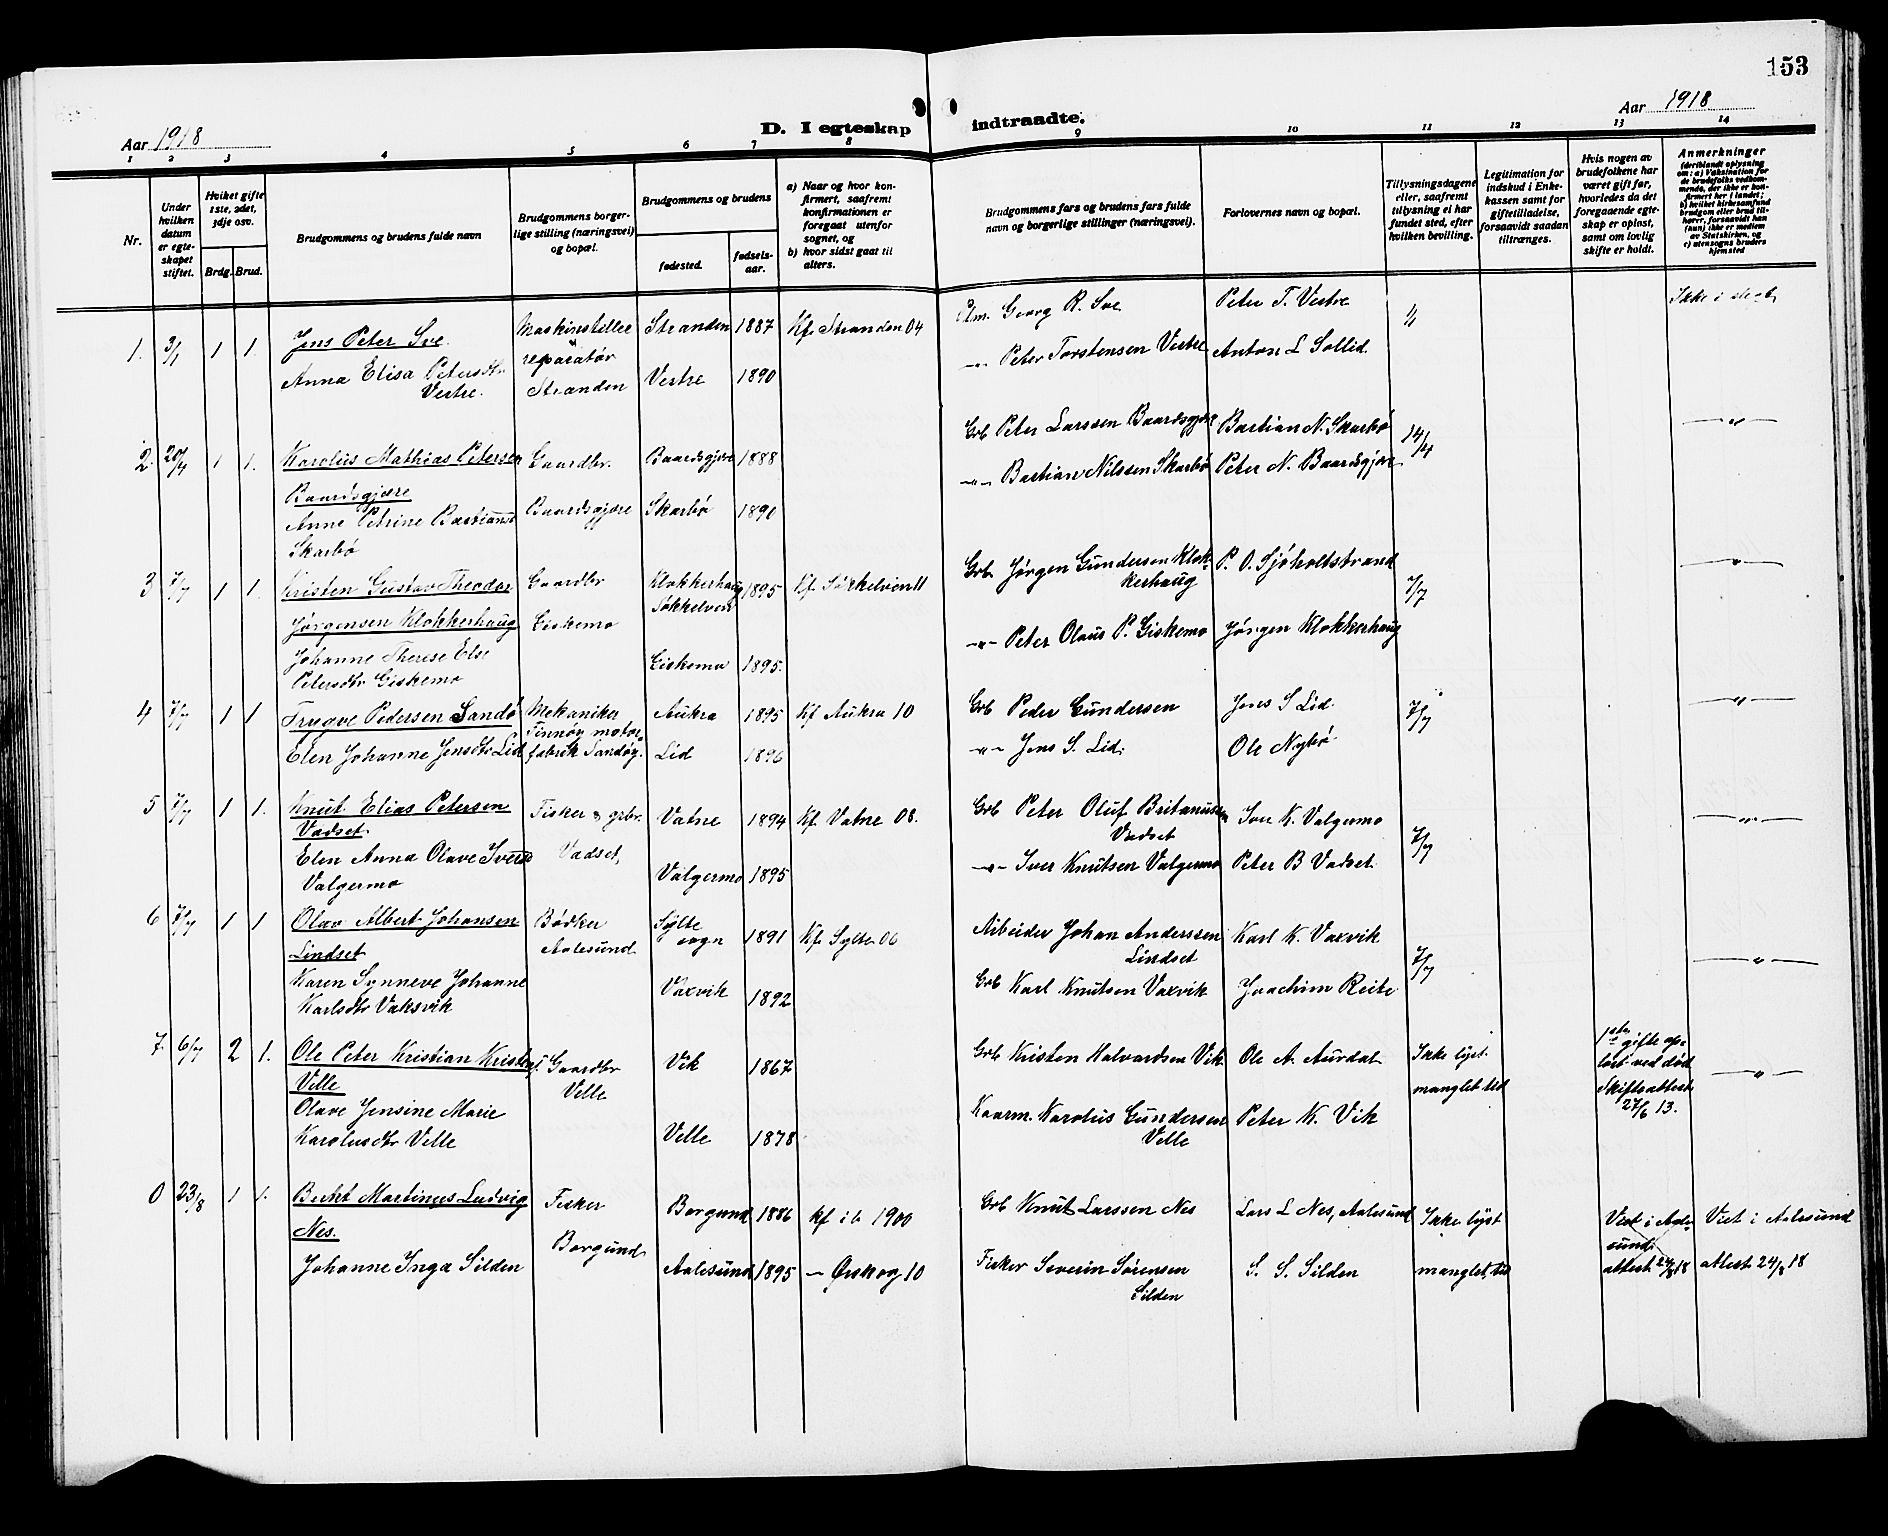 153
Aar 1918
D. I egteskap indtraadte.
Aar 1918
1 2 3 4 5 6 7 8 9 10 11 12 13 14
Nr.
Under hvilken datum er egteskapet stiftet.
Hviket gifte 1ste, 2det, 3dje osv.
Brdg. Brud.
Brudgommens og brudens fulde navn
Brudgommens borgerlige stilling (næringsvei) og bopæl.
Brudgommens og brudens
fødested. fødselsaar.
a) Naar og hvor konfirmert, saafremt konfirmationen er foregaat utenfor sognet, og
b) hvor sidst gaat til alters.
Brudgommens fars og brudens fars fulde navn og borgerlige stillinger (næringsvei).
Forlovernes navn og bopæl.
Tillysningsdagene eller, saafremt tillysning ei har fundet sted, efter hvilken bevilling.
Legitimation for indskud i Enkekassen samt for giftetilladelse, forsaavidt saadan tiltrænges.
Hvis nogen av brudefolkene har været gift før, hvorledes da det foregaaende egteskap er opløst, samt om lovlig skifte er holdt.
Anmerkninger
(deriblandt oplysning om: a) Vaksination for de brudefolks vedkommende, der ikke er konfirmert her i landet; b) hvilket kirkesamfund brudgom eller brud tilhører, forsaavidt han (hun) ikke er medlem av Statskirken, og c) utensogns bruders hjemsted
1. 3/1 1 1. Jens Peter Sve. Maskinsteller Stranden 1887 Kf. Stranden 04 Em. Georg R. Sve Peter T. Vestre 1/1 Ikke i slegt
reparatør
Anna Elisa Petersdtr Vestre. Stranden Vestre 1890 -"- Peter Torstensen Vestre Anton L Sollid.
2. 20/4 1 1. Karolus Mathias Petersen Gaardbr. Baardsgjære 1888 Grb Peter Larssen Baardsgjære Bastian N. Skarbø 14/4 -"-
Baardsgjære
Anne Petrine Bastiansd Baardsgjære Skarbø 1890 -"- Bastian Nilssen Skarbø Peter N. Baardsgjære
Skarbø
3 7/7 1 1. Kristen Gustav Theodor Gaardbr Klokkerhaug Søkkelven 1895 Kf. Søkkelven 11 Grb Jørgen Gundersen Klokkerhaug P. O. Sjøholtstrand 7/7 -"-
Jørgensen Klokkerhaug Giskemo
Johanne Therese Else Giskemo 1895. -"- Peter Olaus P. Giskemo Jørgen Klokkerhaug
Petersdtr Giskemo
4 7/7 1 1 Trygve Pedersen Sandø Mekaniker Aukra 1895 Kf Aukra 10 Grb Peder Gundersen Jens S Lid. 7/7 -"-
Finnøy motor-
Elen Johanne Jensdtr Lid fabrik Sandøy. Lid 1896 -"- Jens S. Lid. Ole Nybø
5 7/7 1 1. Knut Elias Petersen Fisker & grbr. Vatne 1894 Kf. Vatne 08. Grb Peter Oluf Britanusen Vadset Iver K. Valgermo 7/7 -"-
Vadset
Elen Anna Olave Iversd Vadset, Valgermo 1895 -"- Iver Knutsen Valgermo Peter B Vadset.
Valgermo
6 7/7 1 1 Olav Albert Johansen Bødker Sylte sogn 1891 Kf. Sylte 06 Arbeider Johan Anderssen Lindset Karl K. Vaxvik 7/7 -"-
Lindset Aalesund
Karen Synneve Johanne Vaxvik 1892 Grb Karl Knutsen Vaxvik Joachim Reite
Karlsdtr Vaksvik
7. 6/7 2 1. Ole Peter Kristian Kristens. Gaardbr Vik 1867 Grb Kristen Halvardsen Vik Ole A. Aurdal Ikke lyst. 1ste gifte opløst ved død -"-
Velle Velle manglet tid Skifteattest 27/6 13.
Olave Jensine Marie Velle 1878 Kaarm. Karolus Gundersen Velle Peter K. Vik
Karolusdtr Velle
0 23/8 1 1. Berkt Martinus Ludvig Fisker Borgund 1886 Kf ib 1900 Grb Knut Larssen Nes Lars L Nes, Aalesund Ikke lyst Viet i Aalesund. attest 24/8 18 Viet i Aalesund
Nes. Borgund
Johanne Inga Silden Aalesund 1895 - Ørskog 10 Fisker Severin Sørensen Silden S. S. Silden manglet tid attest 24/8 18